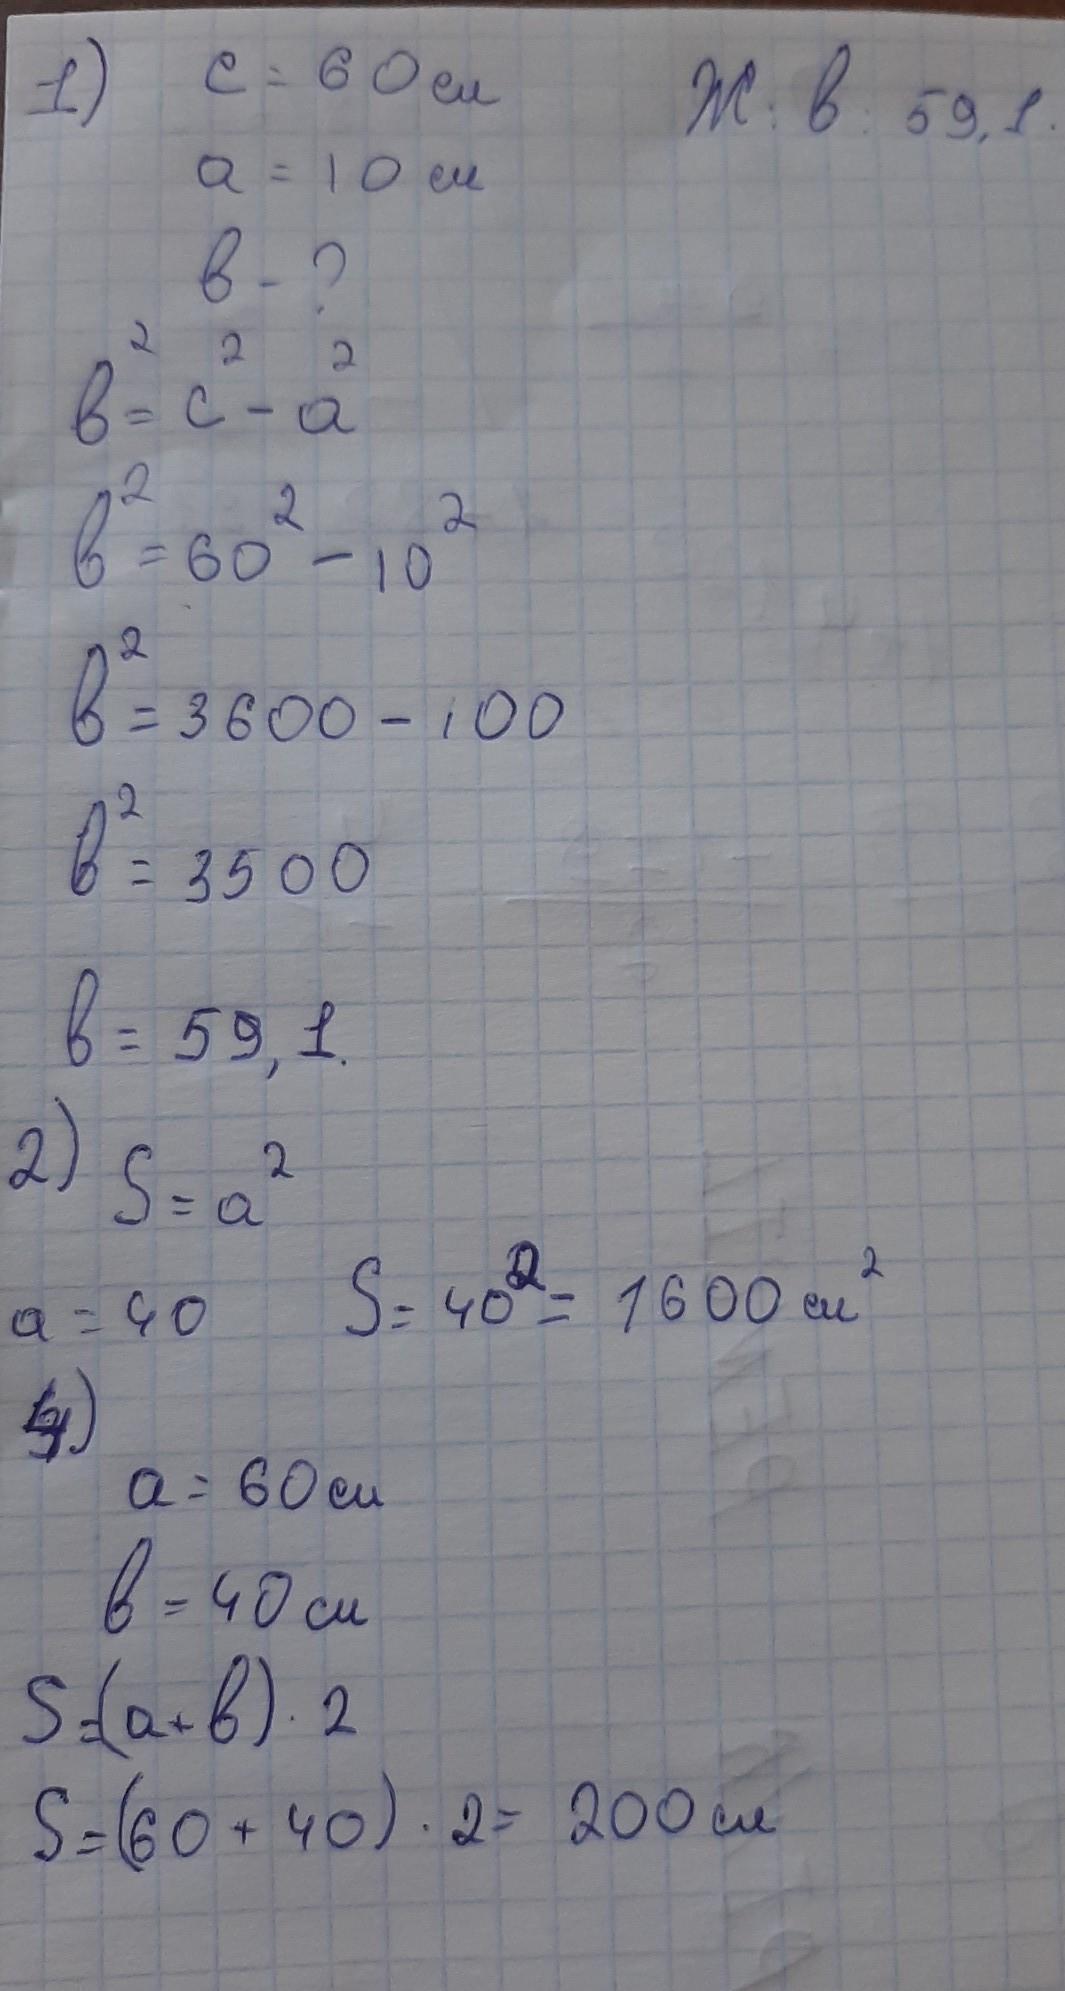 1) c = 60 см
Ж: в: 59,1.
a = 10 см
в - ?
в² = c² - a²
в² = 60² - 10²
в² = 3600 - 100
в² = 3500
в = 59,1.
2) S = a²
a = 40 S = 40² = 1600 см²
4)
a = 60 см
в = 40 см
S = (a + в) · 2
S = (60 + 40) · 2 = 200 см